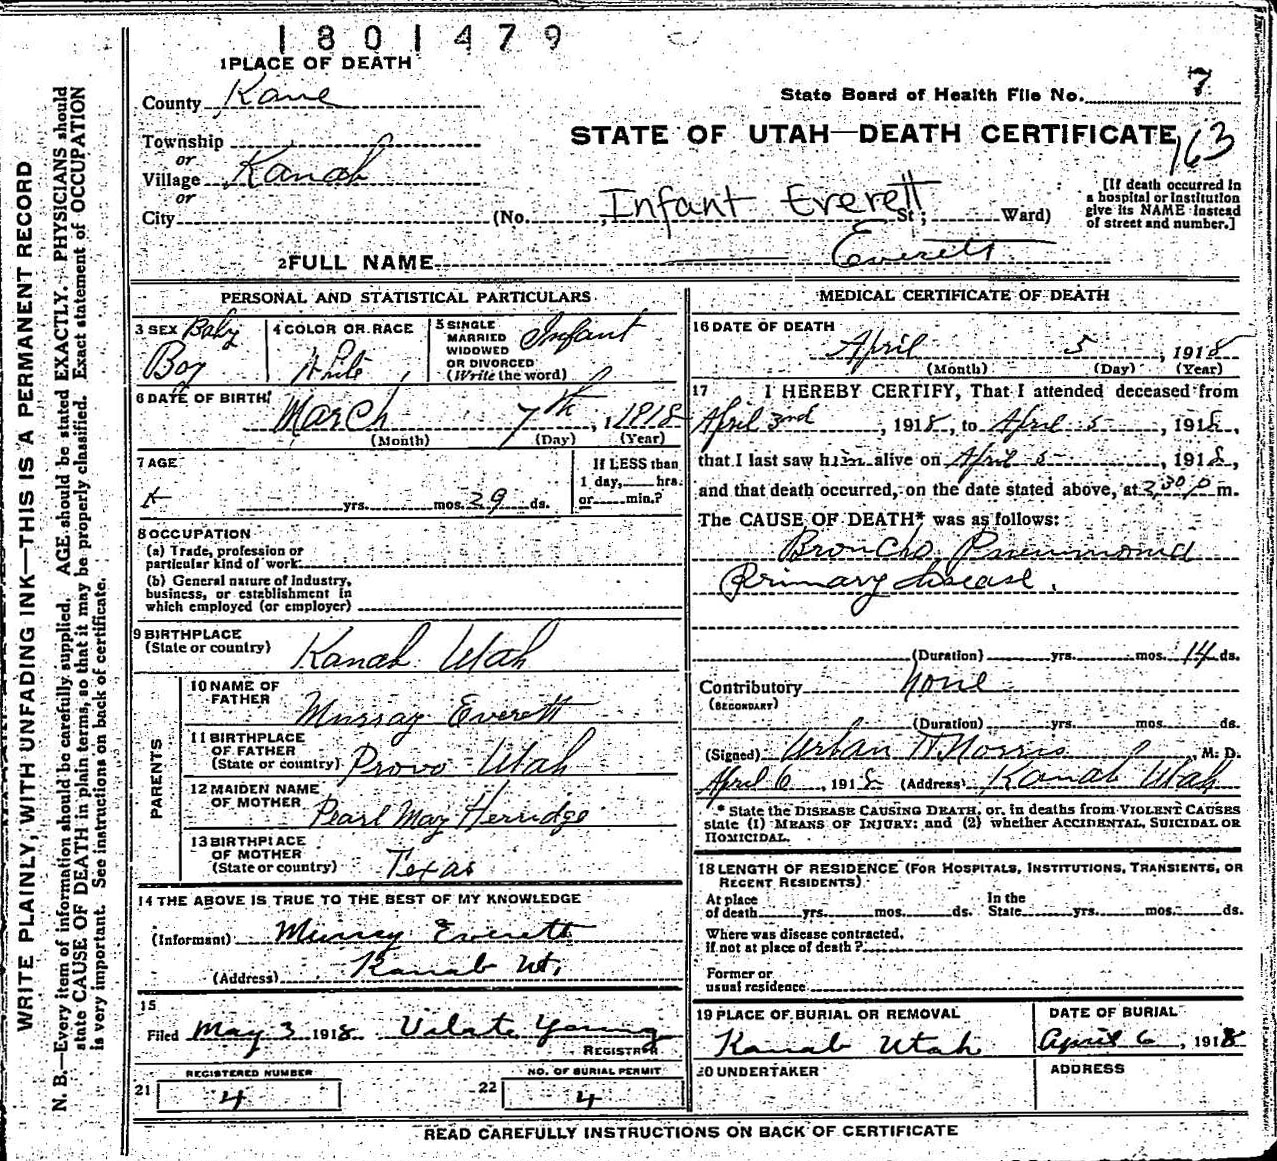 1801479
1 PLACE OF DEATH
County Kane
State Board of Health File No. 7
Township
or
Village Kanab
or
City
STATE OF UTAH—DEATH CERTIFICATE
163
(No. Infant Everett St.; Ward)
[If death occurred in
a hospital or institution
give its NAME instead
of street and number.]
2 FULL NAME Everett
PERSONAL AND STATISTICAL PARTICULARS
3 SEX Baby
Boy
4 COLOR OR RACE
White
5 SINGLE
MARRIED
WIDOWED
OR DIVORCED
(Write the word)
Infant
6 DATE OF BIRTH
March 7th, 1918
(Month) (Day) (Year)
7 AGE
yrs. mos. 29 ds.
If LESS than
1 day, hrs.
or min.?
8 OCCUPATION
(a) Trade, profession or
particular kind of work
(b) General nature of industry,
business, or establishment in
which employed (or employer)
9 BIRTHPLACE
(State or country) Kanab Utah
PARENTS
10 NAME OF
FATHER Murray Everett
11 BIRTHPLACE
OF FATHER
(State or country) Provo Utah
12 MAIDEN NAME
OF MOTHER Pearl May Herridge
13 BIRTHPLACE
OF MOTHER
(State or country) Texas
14 THE ABOVE IS TRUE TO THE BEST OF MY KNOWLEDGE
(Informant) Murray Everett
(Address) Kanab Ut.
15
Filed May 3 1918 Vilate Young
REGISTRAR
REGISTERED NUMBER
21 4
NO. OF BURIAL PERMIT
22 4
MEDICAL CERTIFICATE OF DEATH
16 DATE OF DEATH
April 5, 1918
(Month) (Day) (Year)
17 I HEREBY CERTIFY, That I attended deceased from
April 3rd, 1918, to April 5, 1918,
that I last saw him alive on April 5, 1918,
and that death occurred, on the date stated above, at 2:30 p m.
The CAUSE OF DEATH* was as follows:
Broncho Pneumonia
Primary disease.
(Duration) yrs. mos. 14 ds.
Contributory None
(SECONDARY)
(Duration) yrs. mos. ds.
(Signed) Urban N. Norris, M. D.
April 6, 1918 (Address) Kanab Utah
* State the DISEASE CAUSING DEATH, or, in deaths from VIOLENT CAUSES
state (1) MEANS OF INJURY; and (2) whether ACCIDENTAL, SUICIDAL OR
HOMICIDAL.
18 LENGTH OF RESIDENCE (FOR HOSPITALS, INSTITUTIONS, TRANSIENTS, OR
RECENT RESIDENTS)
At place In the
of death yrs. mos. ds. State yrs. mos. ds.
Where was disease contracted,
if not at place of death?
Former or
usual residence
19 PLACE OF BURIAL OR REMOVAL
Kanab Utah
DATE OF BURIAL
April 6, 1918
20 UNDERTAKER
ADDRESS
READ CAREFULLY INSTRUCTIONS ON BACK OF CERTIFICATE
WRITE PLAINLY, WITH UNFADING INK—THIS IS A PERMANENT RECORD
N. B.—Every item of information should be carefully supplied. AGE should be stated EXACTLY. PHYSICIANS should
state CAUSE OF DEATH in plain terms, so that it may be properly classified. Exact statement of OCCUPATION
is very important. See instructions on back of certificate.